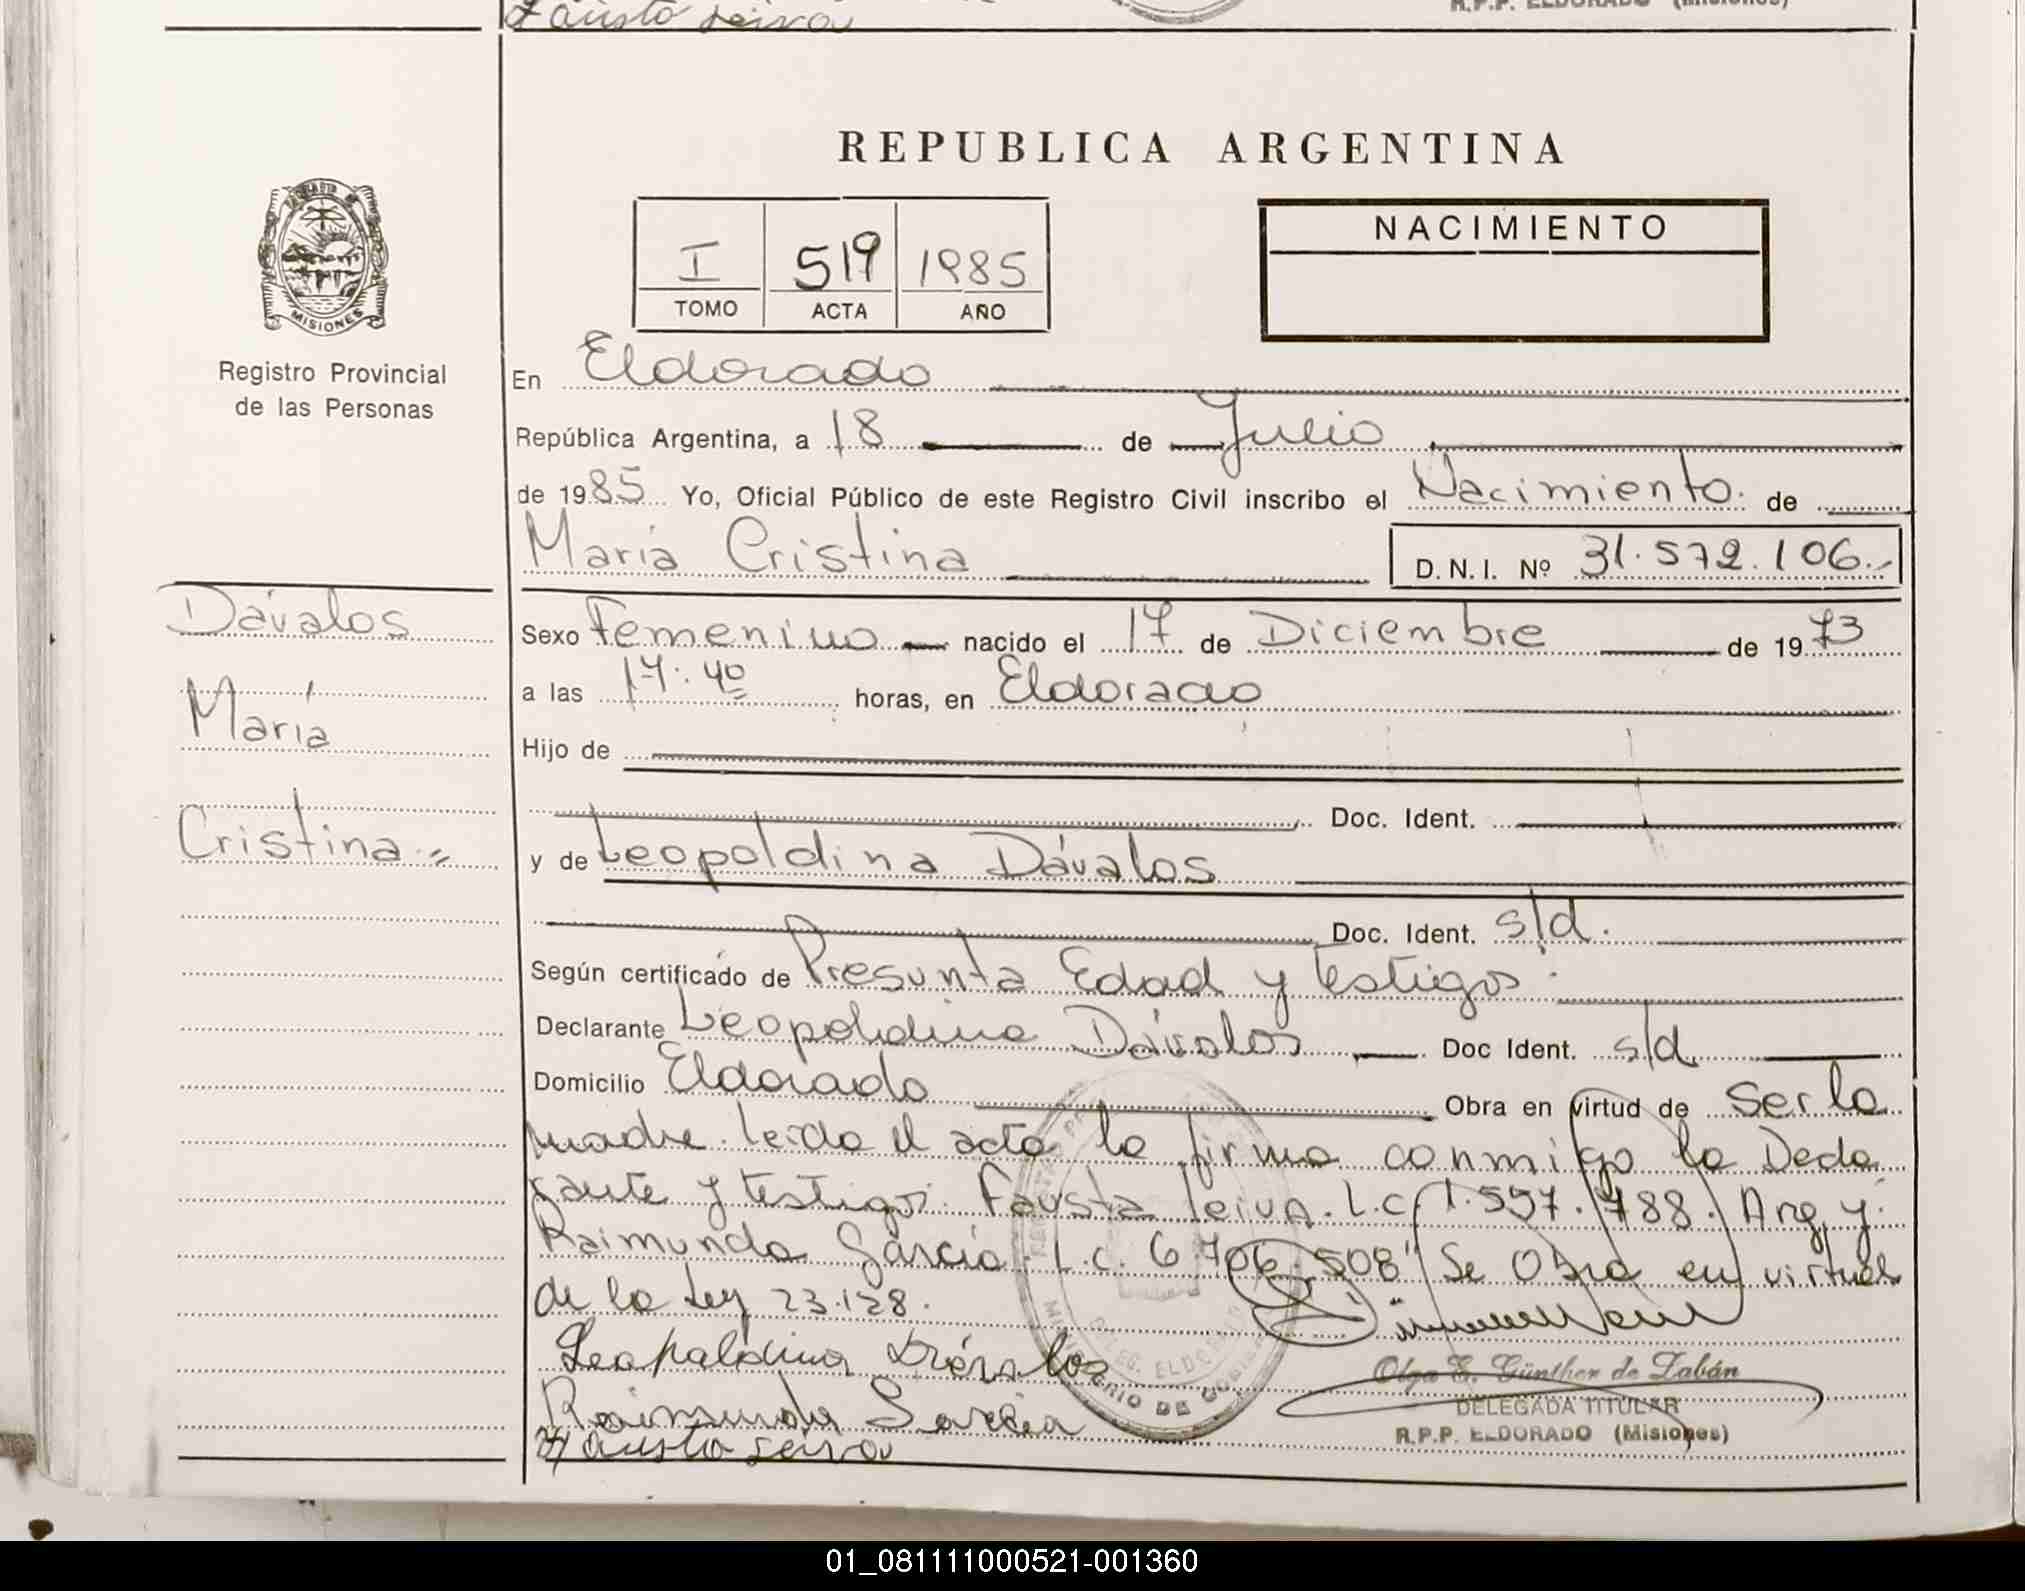 Fausto Leiva
R.P.P. ELDORADO (Misiones)
REPUBLICA ARGENTINA
MISIONES
Registro Provincial
de las Personas
I 519 1985
TOMO ACTA AÑO
NACIMIENTO
En Eldorado
República Argentina, a 18 de Julio
de 1985 Yo, Oficial Público de este Registro Civil inscribo el Nacimiento de
María Cristina D.N.I. Nº 31.572.106.-
Dávalos
María
Cristina.=
Sexo Femenino nacido el 17 de Diciembre de 1973
a las 17:40 horas, en Eldorado
Hijo de
Doc. Ident.
y de Leopoldina Dávalos
Doc. Ident. s/d.
Según certificado de Presunta Edad y testigos.
Declarante Leopoldina Dávalos Doc Ident. s/d
Domicilio Eldorado Obra en virtud de Ser la
madre. Leida el acta la firma conmigo la Decla
rante y testigos. Fausta Leiva. L.C. 1.597.788. Arg. y.
Raimunda García. L.C. 6.706.508" Se Obra en virtud
de la Ley 23.128.
Leopoldina Dávalos
Raimunda Garcia
Fausto Leiva
Olga E. Günther de Zabán
DELEGADA TITULAR
R.P.P. ELDORADO (Misiones)
01_081111000521-001360